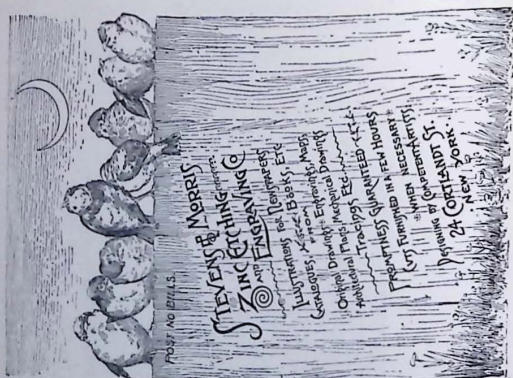 POST NO BILLS.
STEVENS & MORRIS
ZINC ETCHING
AND ENGRAVING CO
ILLUSTRATIONS FOR NEWSPAPERS
CATALOGUES, BOOKS, ETC
FROM
Original Drawings Engravings, Maps,
Architectural Plans, Mechanical Drawings
Tracings Etc.
PROMPTNESS GUARANTEED
CUTS FURNISHED IN FEW HOURS
WHEN NECESSARY
DESIGNING BY COMPETENT ARTISTS.
24 CORTLANDT ST.
NEW YORK